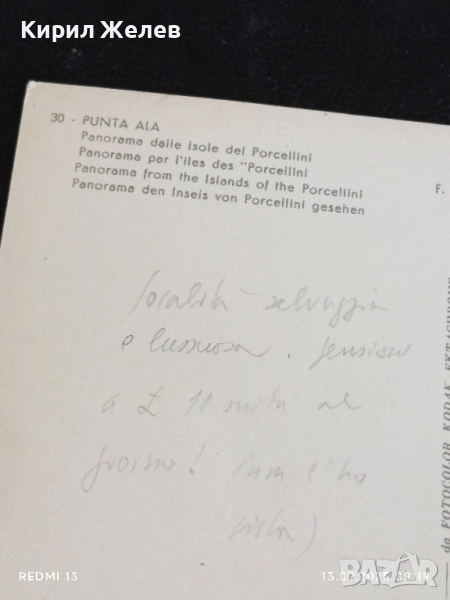 Кирил Желев
30 - PUNTA ALA
Panorama dalle isole dei Porcellini
Panorama par l'iles des "Porcellini
Panorama from the Islands of the Porcellini
Panorama den Inseis von Porcellini gesehen
F.
località selvaggia
e lussuosa. Pensioni
a £ 11 mila al
giorno! (non l'ho
vista)
da FOTOCOLOR KODAK EKTACHROME
REDMI 13
BAZAR.bg